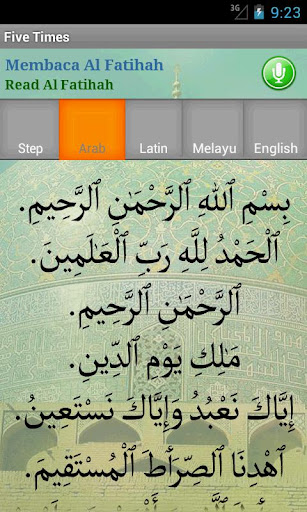 3G 9:23
Five Times
Membaca Al Fatihah
Read Al Fatihah
Step Arab Latin Melayu English
بِسْمِ ٱللَّهِ ٱلرَّحْمَٰنِ ٱلرَّحِيمِ.
ٱلْحَمْدُ لِلَّهِ رَبِّ ٱلْعَٰلَمِينَ.
ٱلرَّحْمَٰنِ ٱلرَّحِيمِ.
مَٰلِكِ يَوْمِ ٱلدِّينِ.
إِيَّاكَ نَعْبُدُ وَإِيَّاكَ نَسْتَعِينُ.
ٱهْدِنَا ٱلصِّرَٰطَ ٱلْمُسْتَقِيمَ.